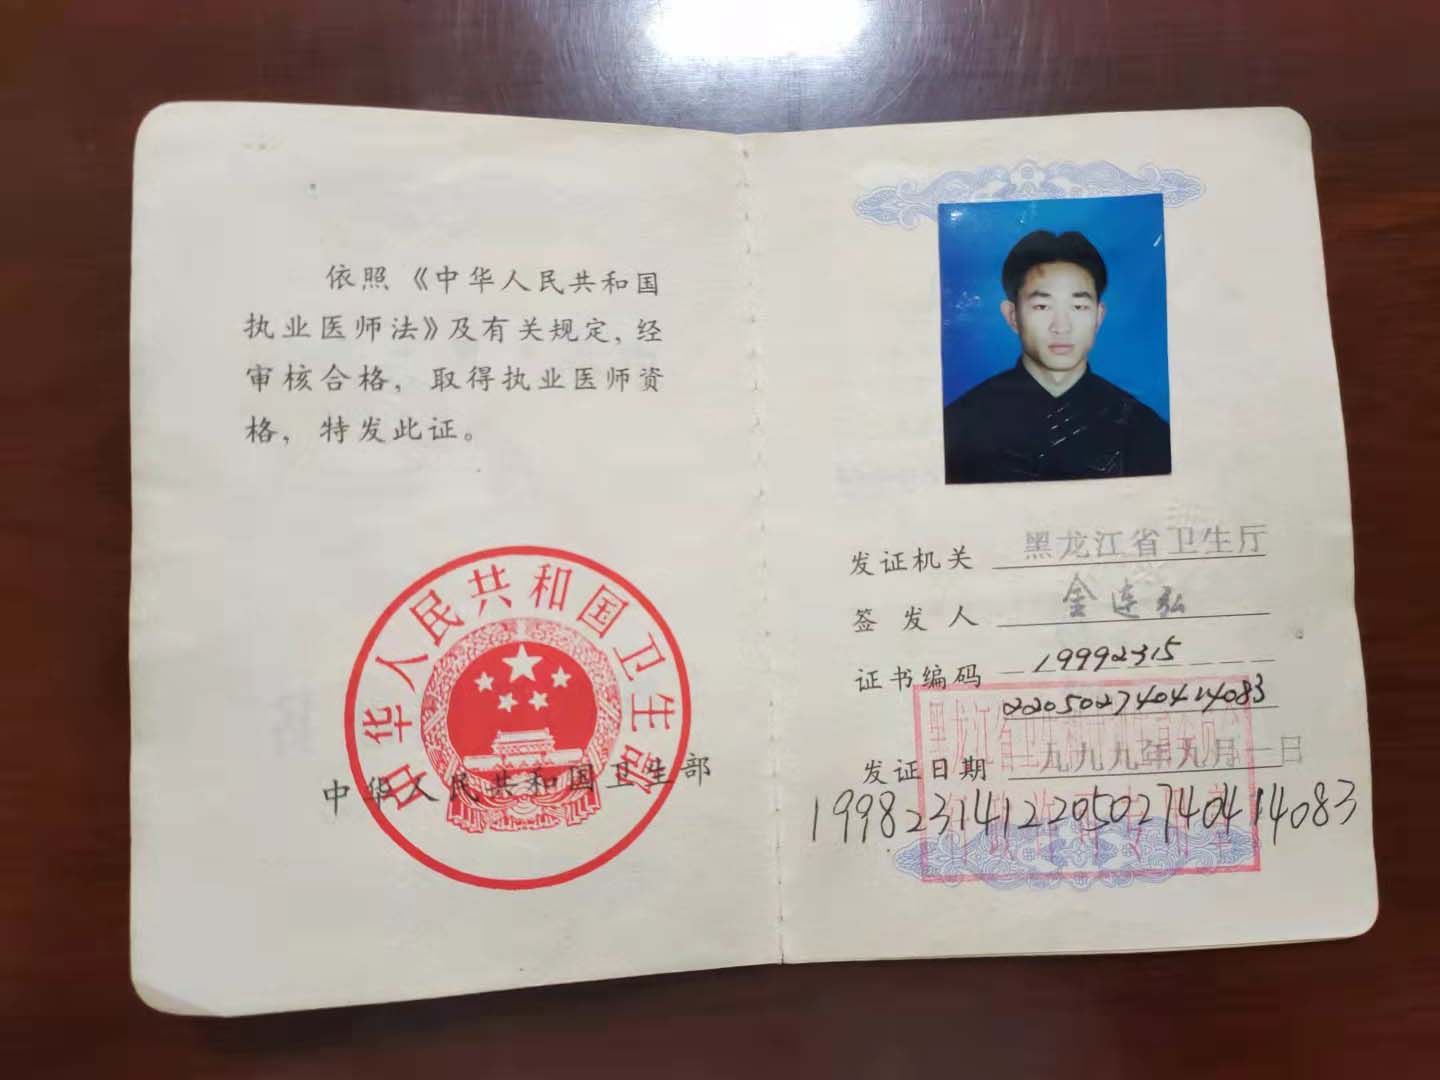 依照《中华人民共和国
执业医师法》及有关规定,经
审核合格，取得执业医师资
格，特发此证。
中华人民共和国卫生部
中华人民共和国卫生部
发证机关 黑龙江省卫生厅
签发人 金连弘
证书编码 19992315
220502740414083
发证日期 一九九九年九月一日
199823141220502740414083